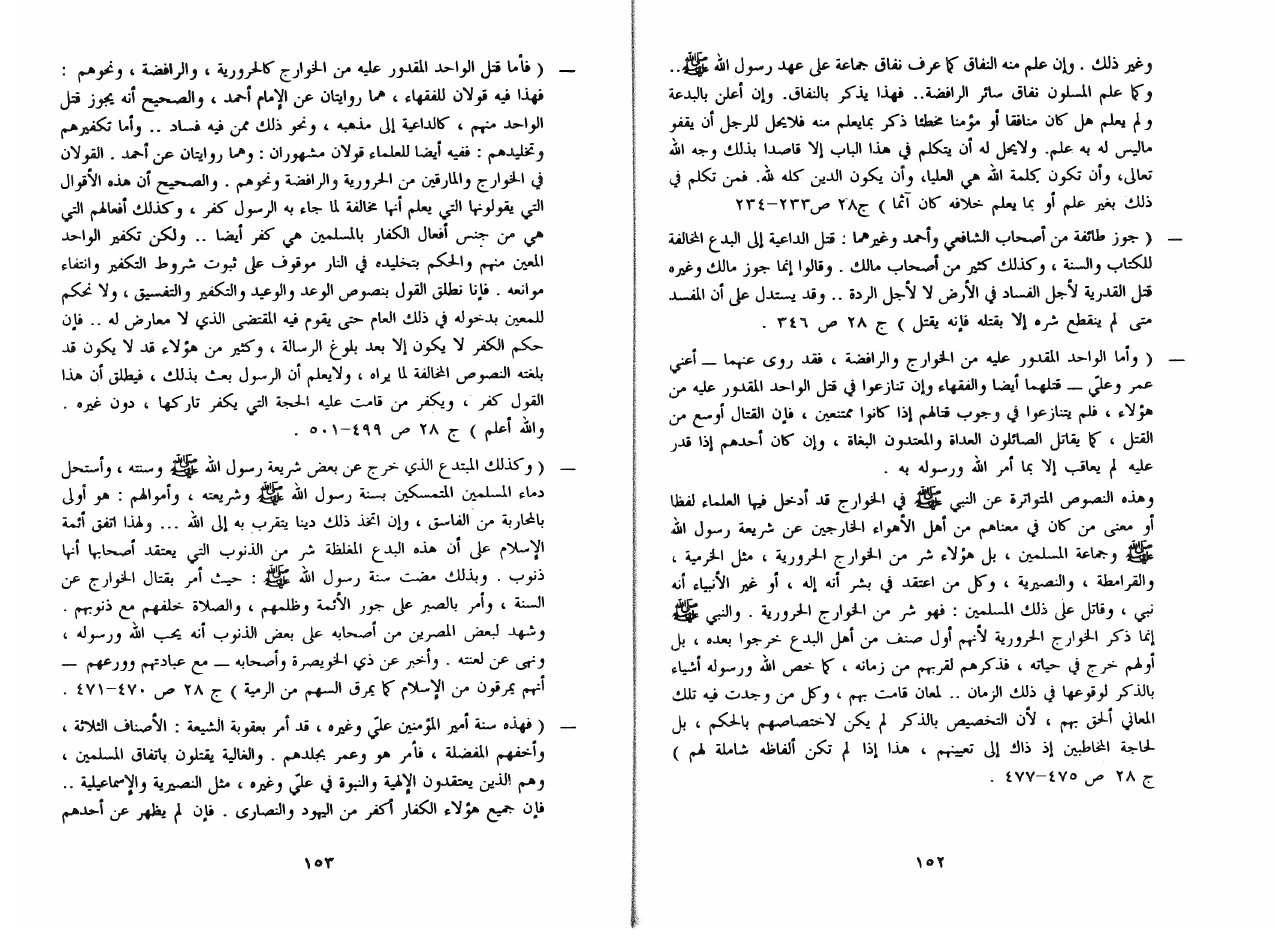 وغير ذلك . وإن علم منه النفاق كما عرف نفاق جماعة على عهد رسول الله ﷺ..
وكما علم المسلون نفاق سائر الرافضة.. فهذا يذكر بالنفاق. وإن أعلن بالبدعة
ولم يعلم هل كان منافقا أو مؤمنا مخطئا ذكر بمايعلم منه فلايحل للرجل أن يقفو
ماليس له به علم. ولايحل له أن يتكلم في هذا الباب إلا قاصدا بذلك وجه الله
تعالى، وأن تكون كلمة الله هي العليا، وأن يكون الدين كله لله. فمن تكلم في
ذلك بغير علم أو بما يعلم خلافه كان آثما ) ج٢٨ ص٢٣٣–٢٣٤
— ( جوز طائفة من أصحاب الشافعي وأحمد وغيرهما : قتل الداعية إلى البدع المخالفة
للكتاب والسنة ، وكذلك كثير من أصحاب مالك . وقالوا إنما جوز مالك وغيره
قتل القدرية لأجل الفساد في الأرض لا لأجل الردة .. وقد يستدل على أن المفسد
متى لم ينقطع شره إلا بقتله فإنه يقتل ) ج ٢٨ ص ٣٤٦ .
— ( وأما الواحد المقدور عليه من الخوارج والرافضة ، فقد روى عنهما — أعني
عمر وعليّ — قتلهما أيضا والفقهاء وإن تنازعوا في قتل الواحد المقدور عليه من
هؤلاء ، فلم يتنازعوا في وجوب قتالهم إذا كانوا ممتنعين ، فإن القتال أوسع من
القتل ، كما يقاتل الصائلون العداة والمعتدون البغاة ، وإن كان أحدهم إذا قدر
عليه لم يعاقب إلا بما أمر الله ورسوله به .
وهذه النصوص المتواترة عن النبي ﷺ في الخوارج قد أدخل فيها العلماء لفظا
أو معنى من كان في معناهم من أهل الأهواء الخارجين عن شريعة رسول الله
ﷺ وجماعة المسلمين ، بل هؤلاء شر من الخوارج الحرورية ، مثل الخرمية ،
والقرامطة ، والنصيرية ، وكل من اعتقد في بشر أنه إله ، أو غير الأنبياء أنه
نبي ، وقاتل على ذلك المسلمين : فهو شر من الخوارج الحرورية . والنبي ﷺ
إنما ذكر الخوارج الحرورية لأنهم أول صنف من أهل البدع خرجوا بعده ، بل
أولهم خرج في حياته ، فذكرهم لقربهم من زمانه ، كما خص الله ورسوله أشياء
بالذكر لوقوعها في ذلك الزمان .. لمعان قامت بهم ، وكل من وجدت فيه تلك
المعاني ألحق بهم ، لأن التخصيص بالذكر لم يكن لاختصاصهم بالحكم ، بل
لحاجة المخاطبين إذ ذاك إلى تعيينهم ، هذا إذا لم تكن ألفاظه شاملة لهم )
ج ٢٨ ص ٤٧٥–٤٧٧ .
١٥٢
— ( فأما قتل الواحد المقدور عليه من الخوارج كالحرورية ، والرافضة ، ونحوهم :
فهذا فيه قولان للفقهاء ، هما روايتان عن الإمام أحمد ، والصحيح أنه يجوز قتل
الواحد منهم ، كالداعية إلى مذهبه ، ونحو ذلك ممن فيه فساد .. وأما تكفيرهم
وتخليدهم : ففيه أيضا للعلماء قولان مشهوران : وهما روايتان عن أحمد . القولان
في الخوارج والمارقين من الحرورية والرافضة ونحوهم . والصحيح أن هذه الأقوال
التي يقولونها التي يعلم أنها مخالفة لما جاء به الرسول كفر ، وكذلك أفعالهم التي
هي من جنس أفعال الكفار بالمسلمين هي كفر أيضا .. ولكن تكفير الواحد
المعين منهم والحكم بتخليده في النار موقوف على ثبوت شروط التكفير وانتفاء
موانعه . فإنا نطلق القول بنصوص الوعد والوعيد والتكفير والتفسيق ، ولا نحكم
للمعين بدخوله في ذلك العام حتى يقوم فيه المقتضى الذي لا معارض له .. فإن
حكم الكفر لا يكون إلا بعد بلوغ الرسالة ، وكثير من هؤلاء قد لا يكون قد
بلغته النصوص المخالفة لما يراه ، ولايعلم أن الرسول بعث بذلك ، فيطلق أن هذا
القول كفر ، ويكفر من قامت عليه الحجة التي يكفر تاركها ، دون غيره .
والله أعلم ) ج ٢٨ ص ٤٩٩–٥٠١ .
— ( وكذلك المبتدع الذي خرج عن بعض شريعة رسول الله ﷺ وسنته ، وأستحل
دماء المسلمين المتمسكين بسنة رسول الله ﷺ وشريعته ، وأموالهم : هو أولى
بالمحاربة من الفاسق ، وإن اتخذ ذلك دينا يتقرب به إلى الله ... ولهذا اتفق أئمة
الإسلام على أن هذه البدع المغلظة شر من الذنوب التي يعتقد أصحابها أنها
ذنوب . وبذلك مضت سنة رسول الله ﷺ : حيث أمر بقتال الخوارج عن
السنة ، وأمر بالصبر على جور الأئمة وظلمهم ، والصلاة خلفهم مع ذنوبهم .
وشهد لبعض المصرين من أصحابه على بعض الذنوب أنه يحب الله ورسوله ،
ونهى عن لعنته . وأخبر عن ذي الخويصرة وأصحابه — مع عبادتهم وورعهم —
أنهم يمرقون من الإسلام كما يمرق السهم من الرمية ) ج ٢٨ ص ٤٧٠–٤٧١ .
— ( فهذه سنة أمير المؤمنين عليّ وغيره ، قد أمر بعقوبة الشيعة : الأصناف الثلاثة ،
وأخفهم المفضلة ، فأمر هو وعمر بجلدهم . والغالية يقتلون باتفاق المسلمين ،
وهم الذين يعتقدون الإلهية والنبوة في عليّ وغيره ، مثل النصيرية والإسماعيلية ..
فإن جميع هؤلاء الكفار أكفر من اليهود والنصارى . فإن لم يظهر عن أحدهم
١٥٣